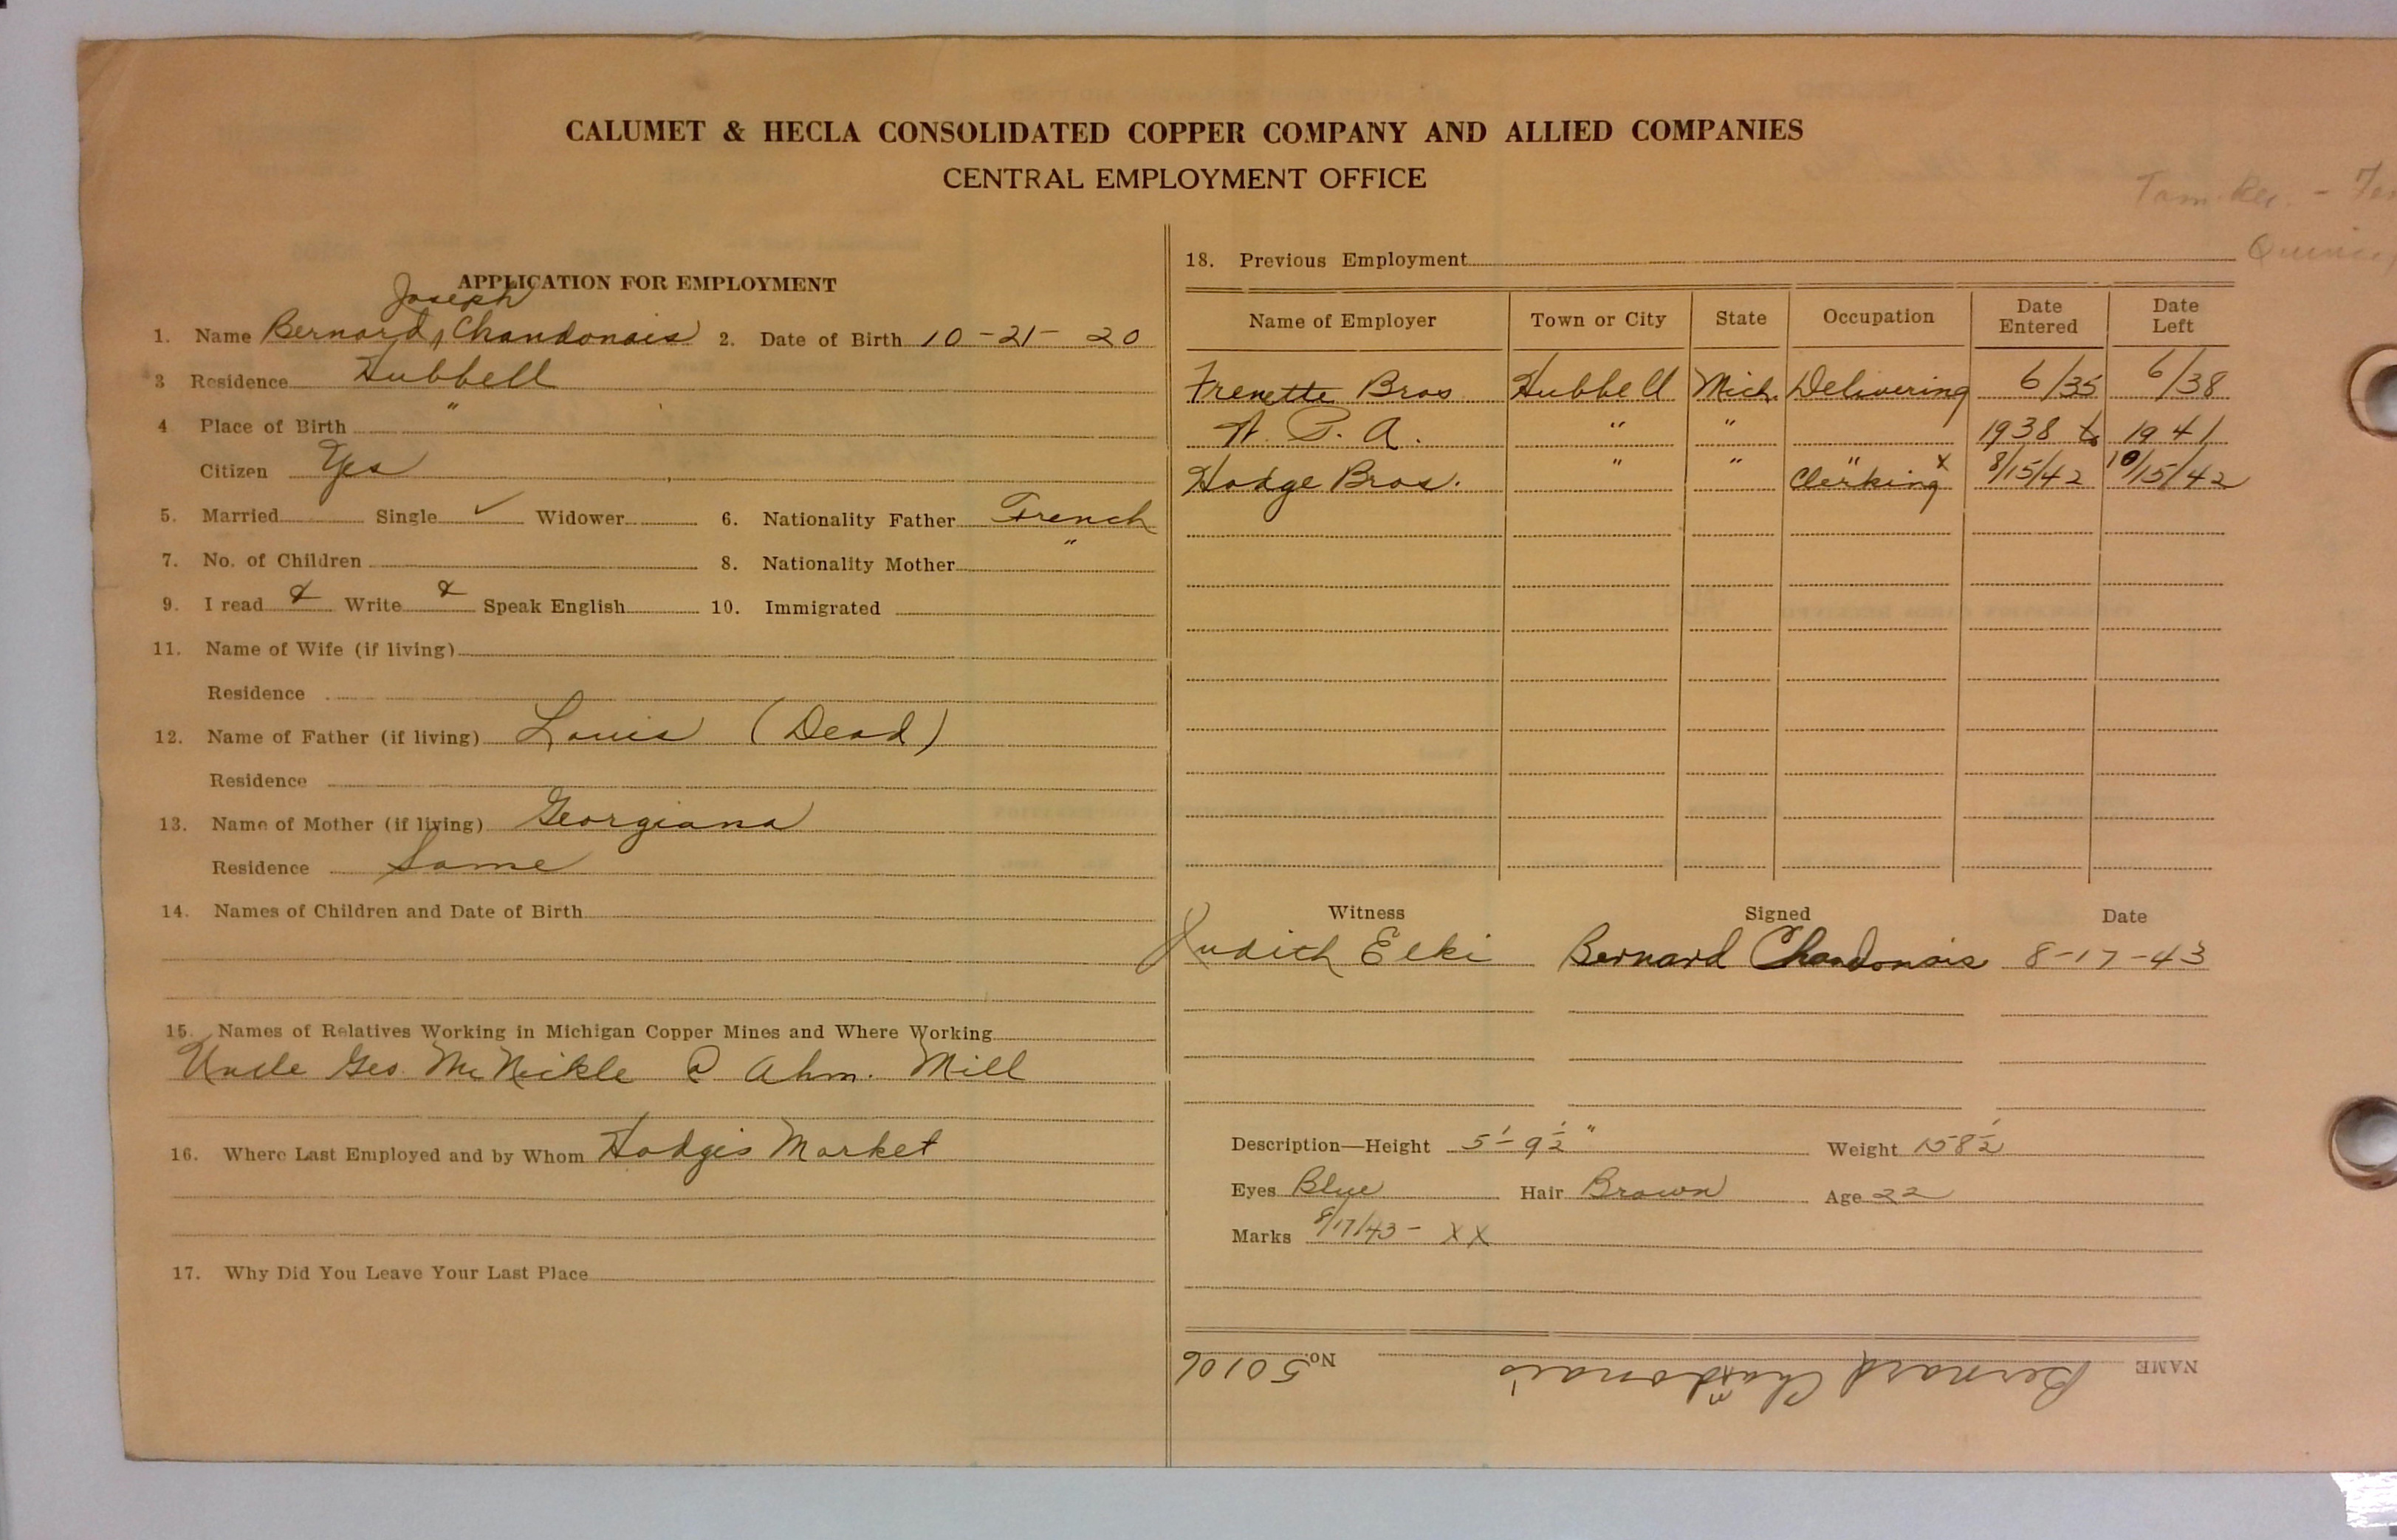 CALUMET & HECLA CONSOLIDATED COPPER COMPANY AND ALLIED COMPANIES
CENTRAL EMPLOYMENT OFFICE
Tam. Rec. -
APPLICATION FOR EMPLOYMENT
Joseph
1. Name Bernard, Chandonais 2. Date of Birth 10-21-20
3 Residence Hubbell
4 Place of Birth "
Citizen Yes
5. Married Single ✓ Widower 6. Nationality Father French
7. No. of Children 8. Nationality Mother "
9. I read & Write & Speak English 10. Immigrated
11. Name of Wife (if living)
Residence
12. Name of Father (if living) Louis (Dead)
Residence
13. Name of Mother (if living) Georgiana
Residence Same
14. Names of Children and Date of Birth
15. Names of Relatives Working in Michigan Copper Mines and Where Working
Uncle Geo. McNickle @ Ahm. Mill
16. Where Last Employed and by Whom Hodges Market
17. Why Did You Leave Your Last Place
18. Previous Employment
Name of Employer Town or City State Occupation Date Entered Date Left
Frenette Bros Hubbell Mich. Delivering 6/35 6/38
W. P. A. " " 1938 to 1941
Hodge Bros. " " " Clerking x 8/15/42 10/15/42
Witness Signed Date
Judith Elki Bernard Chandonais 8-17-43
Description—Height 5'-9½" Weight 158½
Eyes Blue Hair Brown Age 22
Marks 8/17/43 - XX
NAME Bernard Chandonais No. 50106